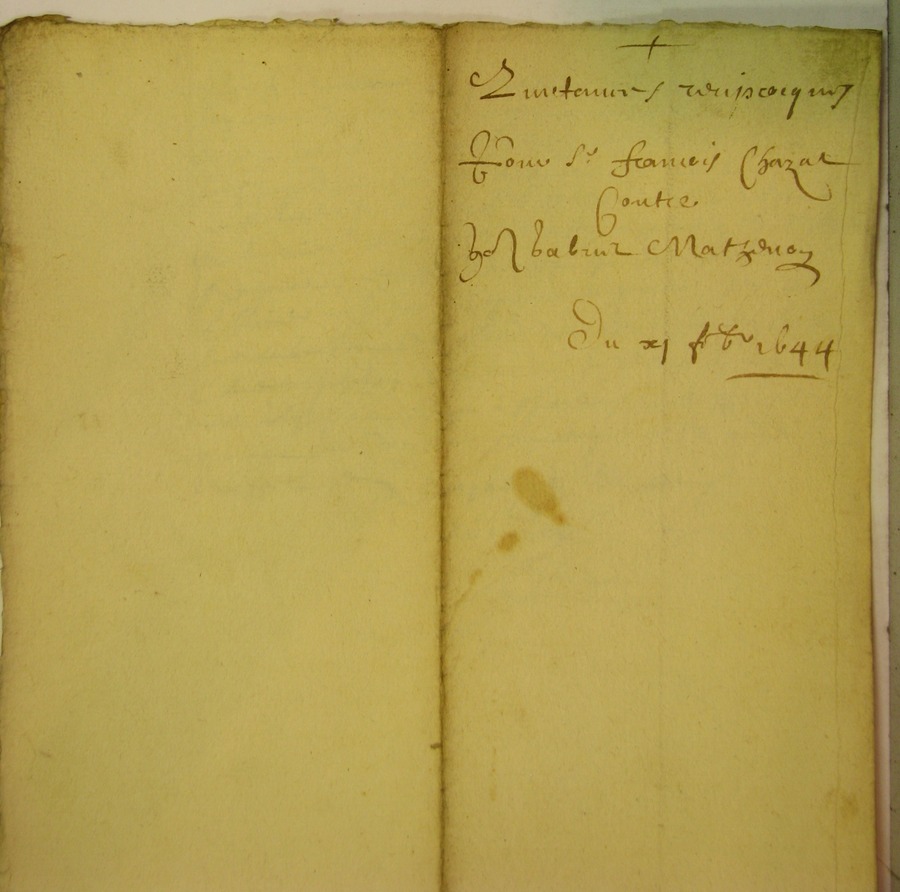 +
Quictances reciproques
Pour Sr francois Chazat
Contre
vabrut Mathevon
Du xj fbr 1644